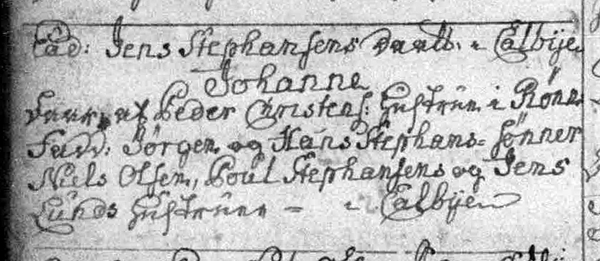 Eãd: Jens Stephansens Daatt: i Calbÿe
Johanne
baar af Peder Christens: Hustrue i Rönn
Fadd: Jörgen og Hans Stephans= sönner
Niels Olsen, Poul Stephansens og Jens
Lunds Hustruer - i Calbÿe